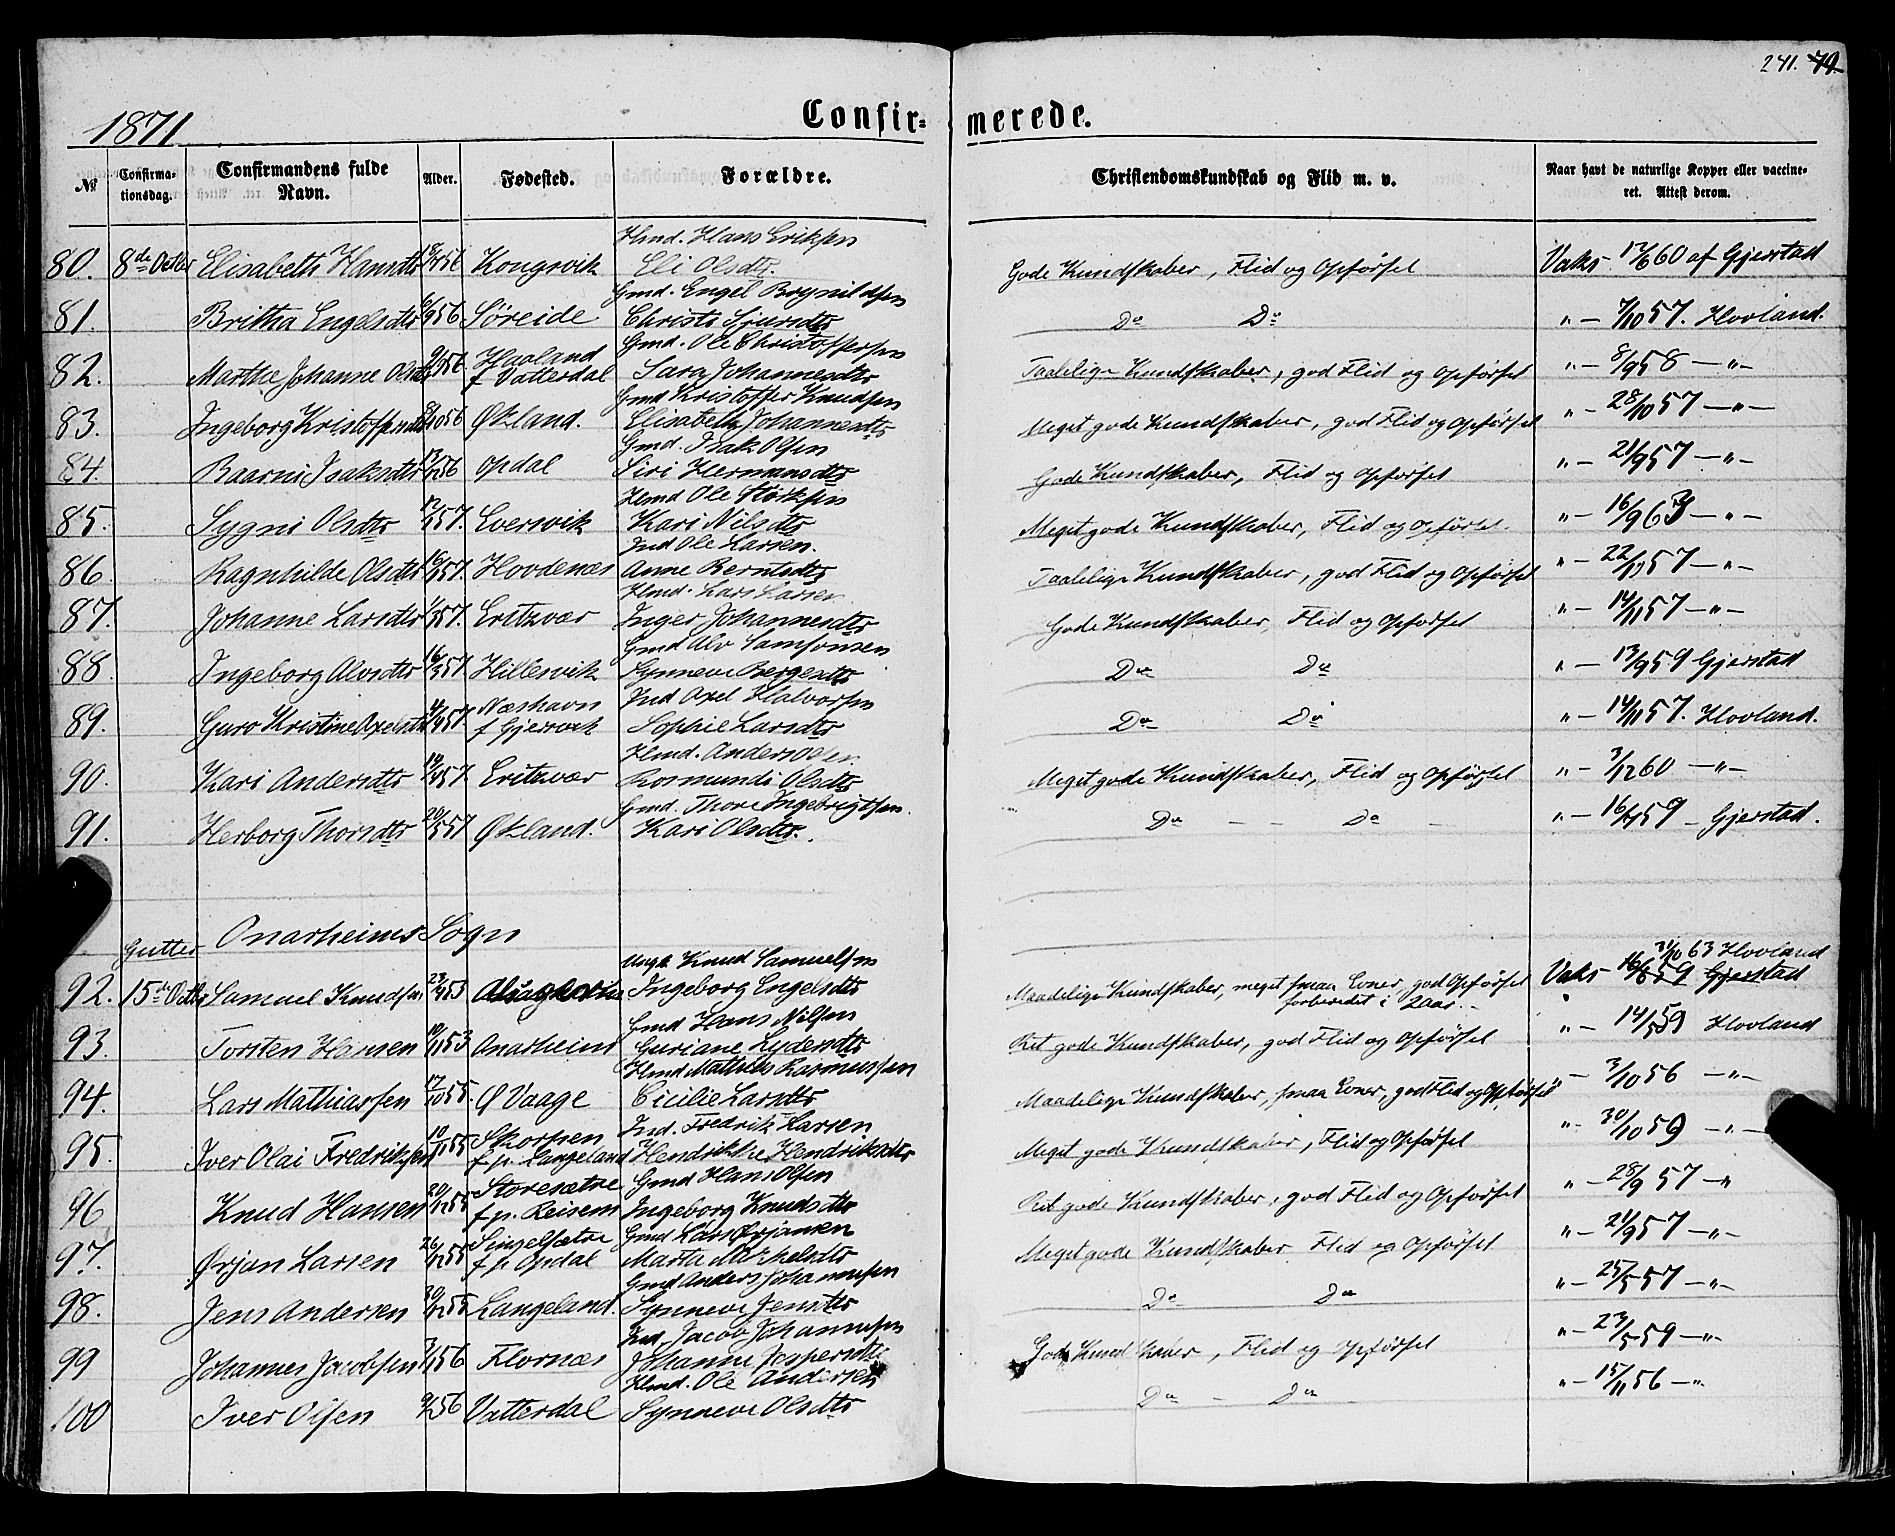 241. 79.
1871
Confir- merede.
№ Confirma-tionsdag. Confirmandens fulde Navn. Alder. Fødested. Forældre. Christendomskundskab og Flid m. v. Naar havt de naturlige Kopper eller vaccine-ret. Attest derom.
Hmd. Hans Eriksen
80. 8de Octbr Elisabeth Hansdtr 56 Kongsvik Eli Olsdtr. Gode Kundskaber, Flid og Opførsel Vaks 17/6 60 af Gjerstad
Gmd. Engel Brynildsen
81. Britha Engelsdtr 56 Søreide Christi Sjursdtr Do Do " - 7/10 57. Hovland.
Gmd. Ole Christoffersen
82. Marthe Johanne Olsdtr 56 Hueland f Vatterdal Sara Johannesdtr Taalelige Kundskaber, god Flid og Opførsel " - 8/9 58 - " -
Gmd Kristoffer Knudsen
83. Ingeborg Kristoffersdtr 56 Økland. Elisabeth Johannesdtr Meget gode Kundskaber, god Flid og Opførsel " - 28/10 57 - " -
Gmd. Isak Olsen
84. Baarni Isaksdtr 56 Opdal Siri Hermansdtr Gode Kundskaber, Flid og Opførsel " - 21/9 57 - " -
Hmd Ole Størksen
85. Sygni Olsdtr 57. Eversvik Kari Nilsdtr Meget gode Kundskaber, Flid og Opførsel. " - 16/9 63 - " -
Ind Ole Larsen.
86. Ragnhilde Olsdtr 57. Hovdenæs Anne Berntsdtr Taalelige Kundskaber, god Flid og Opførsel " - 22/10 57 - " -
Hmd. Lars Larsen
87. Johanne Larsdtr 57. Eritzvær Inger Johannesdtr Gode Kundskaber, Flid og Opførsel " - 14/11 57 - " -
Gmd Alv Samsonsen
88. Ingeborg Alvsdtr 57. Hillesvik Synneve Bergesdtr Do Do " - 13/9 59 Gjerstad
Ind Axel Halvorsen
89. Guro Kristine Axelsdtr 57. Næshavn f Gjersvik Sophie Larsdtr Do Do " - 14/11 57. Hovland.
Hmd. Anders Olsen
90. Kari Andersdtr 57. Eritzvær Rosmundi Olsdtr Meget gode Kundskaber, Flid og Opførsel " - 3/12 60 - " -
Gmd. Thore Ingebrigtsen.
91. Herborg Thorsdtr 20/5 57 Økland. Kari Olsdtr. Do - - Do - " - 59 - Gjerstad.
Gutter Onarheims Sogn
Ungk Knud Samuelsen 31/10 63 Hovland
92. 15de Octbr Samuel Knudsen 53 Alsagkerhe Ingeborg Engelsdtr Maadelige Kundskaber, meget smaa Evner, god Opførsel Vaks 16/8 59 Gjerstad
forberedet i 2 Aar. -
Gmd Hans Nilsen
93. Torsten Hansen 53 Onarheim Guriane Lydersdtr Ret gode Kundskaber, god Flid og Opførsel " - 14/5 59 Hovland
Hmd Matthias Rasmussen
94. Lars Mathiassen 17/10 55. Ø Vaage Cicilie Larsdtr Maadelige Kundskaber, smaa Evner, god Flid og Opførsel " - 3/10 56 - " -
Ind. Fredrik Larsen
95. Iver Olai Fredriksen 55 Skorpen f. p. Langeland Hendrikke Hendriksdtr Meget gode Kundskaber, Flid og Opførsel " - 30/10 59 - " -
Gmd Hans Olsen
96 Knud Hansen 55 Storesætre f. p. Reisem Ingeborg Knudsdtr Ret gode Kundskaber, god Flid og Opførsel " - 28/9 57 - "
Gmd Lars Ørjansen
97. Ørjan Larsen 26/12 55 Singelsætre f p Opdal Marta Michelsdtr Meget gode Kundskaber Flid og Opførsel " - 21/9 57 - " -
Gmd Anders Johannesen
98. Jens Andersen 30/12 55 Langeland. Synneve Jensdtr Do Do " - 25/5 57 - " -
Ind. Jacob Johannesen
99 Johannes Jacobsen 56 Flornæs Johanne Jespersdtr Gode Kundskaber, Flid og Opførsel " - 23/5 59 - " -
Hmd. Ole Andersen
100 Iver Olsen 56 Vatterdal Synneve Olsdtr Do - Do " - 15/11 56 - "